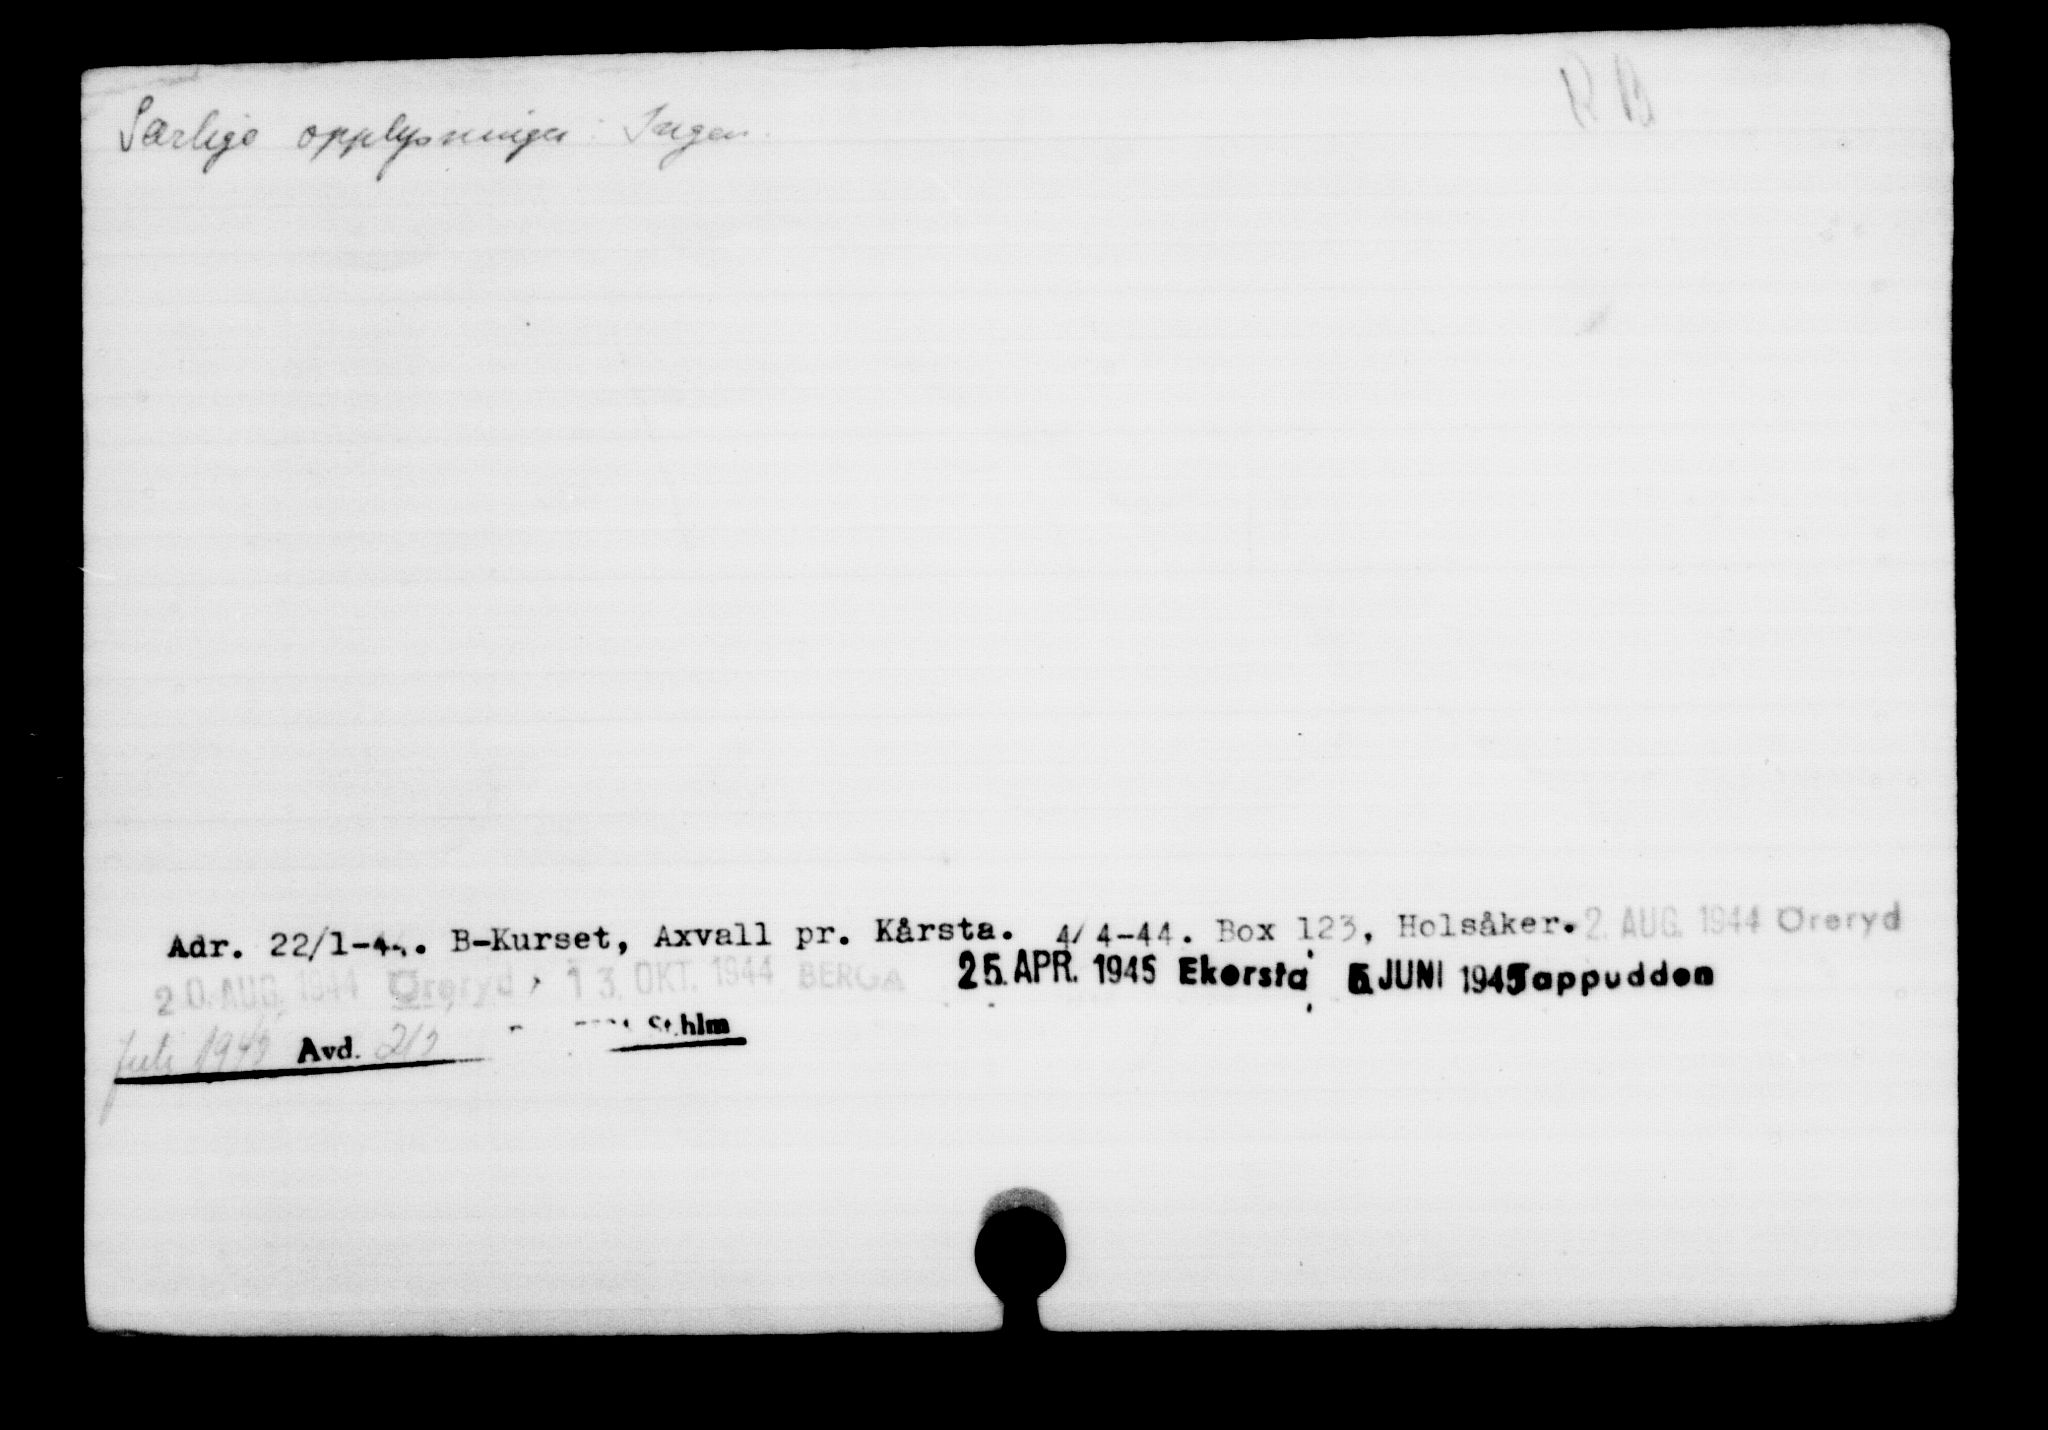 Særlige opplysninger: Ingen.
Adr. 22/1-44. B-Kurset, Axvall pr. Kårsta. 4/4-44. Box 123, Holsåker. 2. AUG. 1944 Öreryd
20. AUG. 1944 Öreryd, 13. OKT. 1944 BERGA 25. APR. 1945 Ekersta 5 JUNI 1945 Tappudden
Juli 1945 Avd. Sthlm